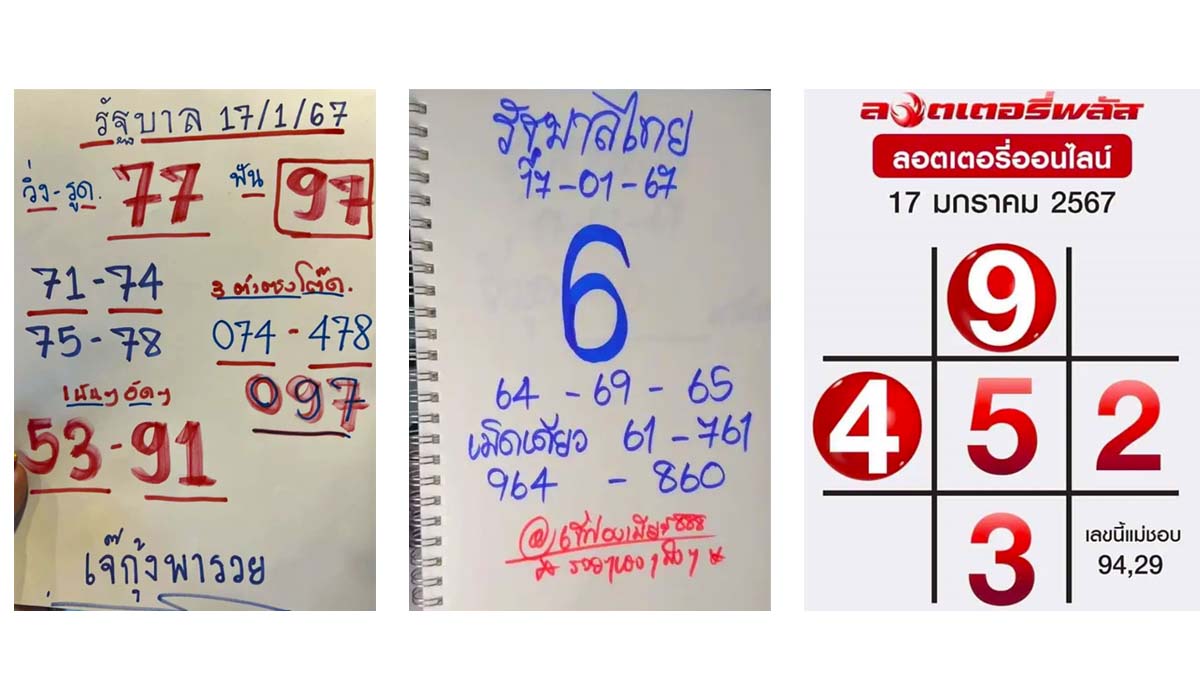 รัฐบาล 17/1/67
วิ่ง-รูด. 77 ฟัน 97
71-74
75-78
3 ตัวตรงโต๊ด.
074-478
097
เน้นๆ อัดๆ
53-91
เจ๊กุ้งพารวย
รัฐบาลไทย
17-01-67
6
64-69-65
เม็ดเดียว 61-761
964-860
ลอตเตอรี่พลัส
ลอตเตอรี่ออนไลน์
17 มกราคม 2567
9
4 5 2
3
เลขนี้แม่ชอบ
94,29